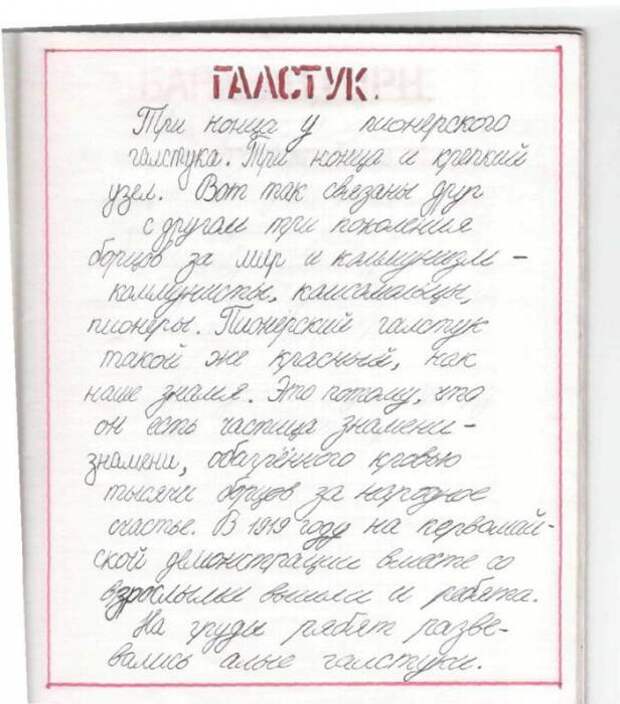 ГАЛСТУК.
Три конца у пионерского
галстука. Три конца и крепкий
узел. Вот так связаны друг
с другом три поколения
борцов за мир и коммунизм –
коммунисты, комсомольцы,
пионеры. Пионерский галстук
такой же красный, как
наше знамя. Это потому, что
он есть частица знамени –
знамени, обагрённого кровью
тысячи борцов за народное
счастье. В 1919 году на первомай-
ской демонстрации вместе со
взрослыми вышли и ребята.
На груди ребят разве-
вались алые галстуки.